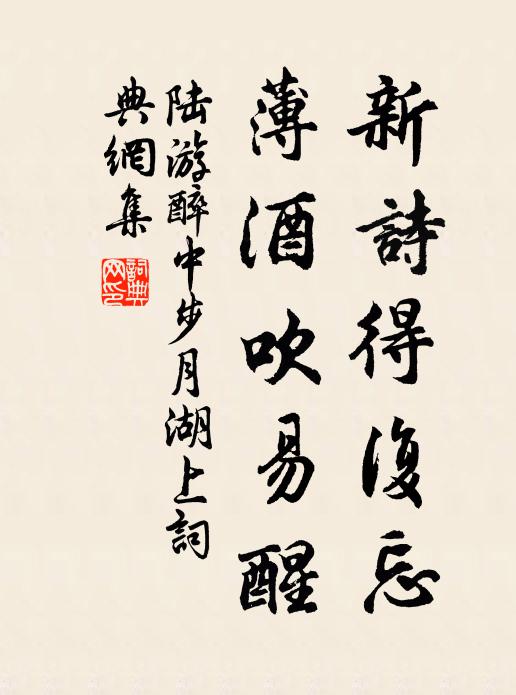 新詩得復忘
薄酒吹易醒
陆游醉中步月湖上詞
典網集
詞典
网印